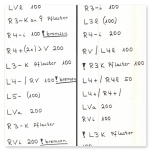 LVR 100
R3-K on 9 Pflaster
R4-i 100 ! bremsen
R4+(2+) > V 200
L3-K Pflaster 100
L4-/RV 100 ! bremsen
L5- (100)
LVa 200
R3-K Pflaster
RVi 200 ! bremsen
R4-i 100
L3R (100)
R4-i 200
RV/L4R 100
! R3K Pflaster 100
L4+/R4R 50
L4+/R4+/
LVa 200
RVi 100
! L3K Pflaster